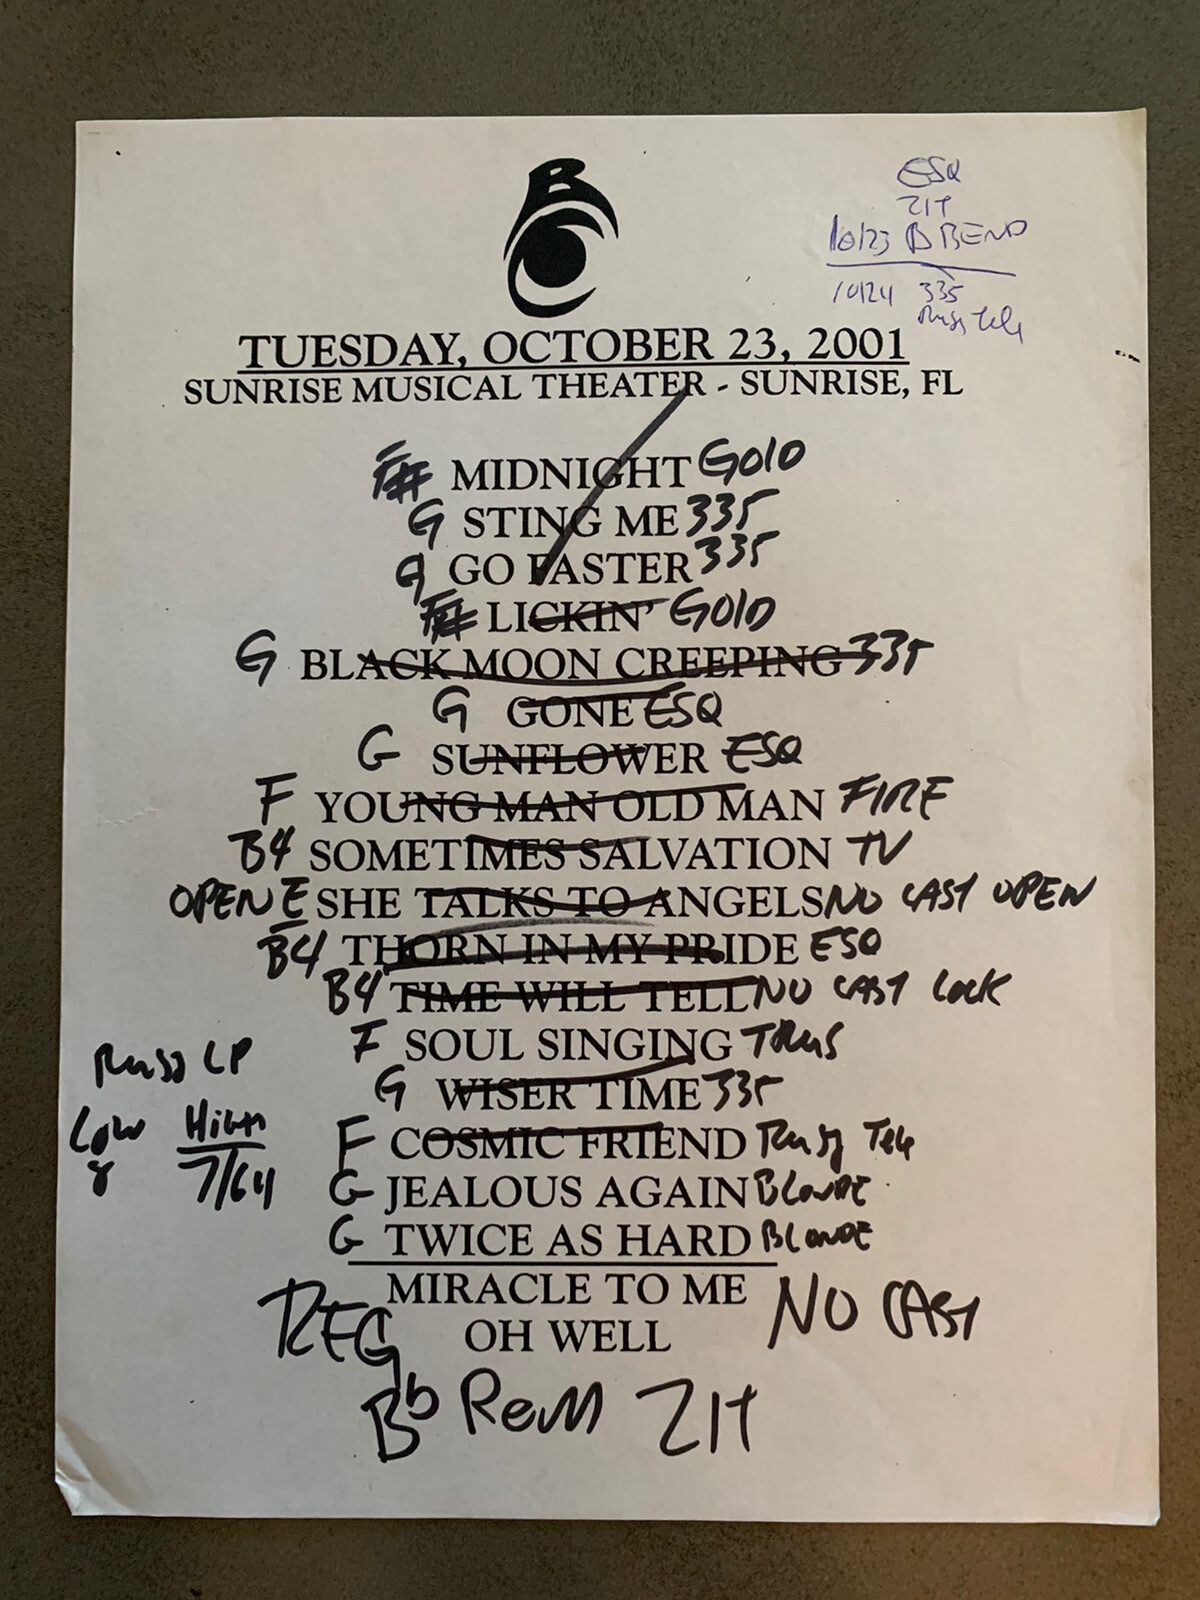 B
ESQ
ZIT
10/23 B BEND
10/24 335
Russ Tele
TUESDAY, OCTOBER 23, 2001
SUNRISE MUSICAL THEATER - SUNRISE, FL
F# MIDNIGHT GOLD
G STING ME 335
G GO FASTER 335
F# LICKIN' GOLD
G BLACK MOON CREEPING 335
G GONE ESQ
G SUNFLOWER ESQ
F YOUNG MAN OLD MAN FIRE
B4 SOMETIMES SALVATION TV
OPEN E SHE TALKS TO ANGELS NO CAST OPEN
B4 THORN IN MY PRIDE ESQ
B4 TIME WILL TELL NO CAST LOCK
F SOUL SINGING TRUS
Russ LP
G WISER TIME 335
Low High
F COSMIC FRIEND Russ Tele
8 7/64
G JEALOUS AGAIN BLONDE
G TWICE AS HARD BLONDE
MIRACLE TO ME NO CAST
REG OH WELL
Bb ZIT